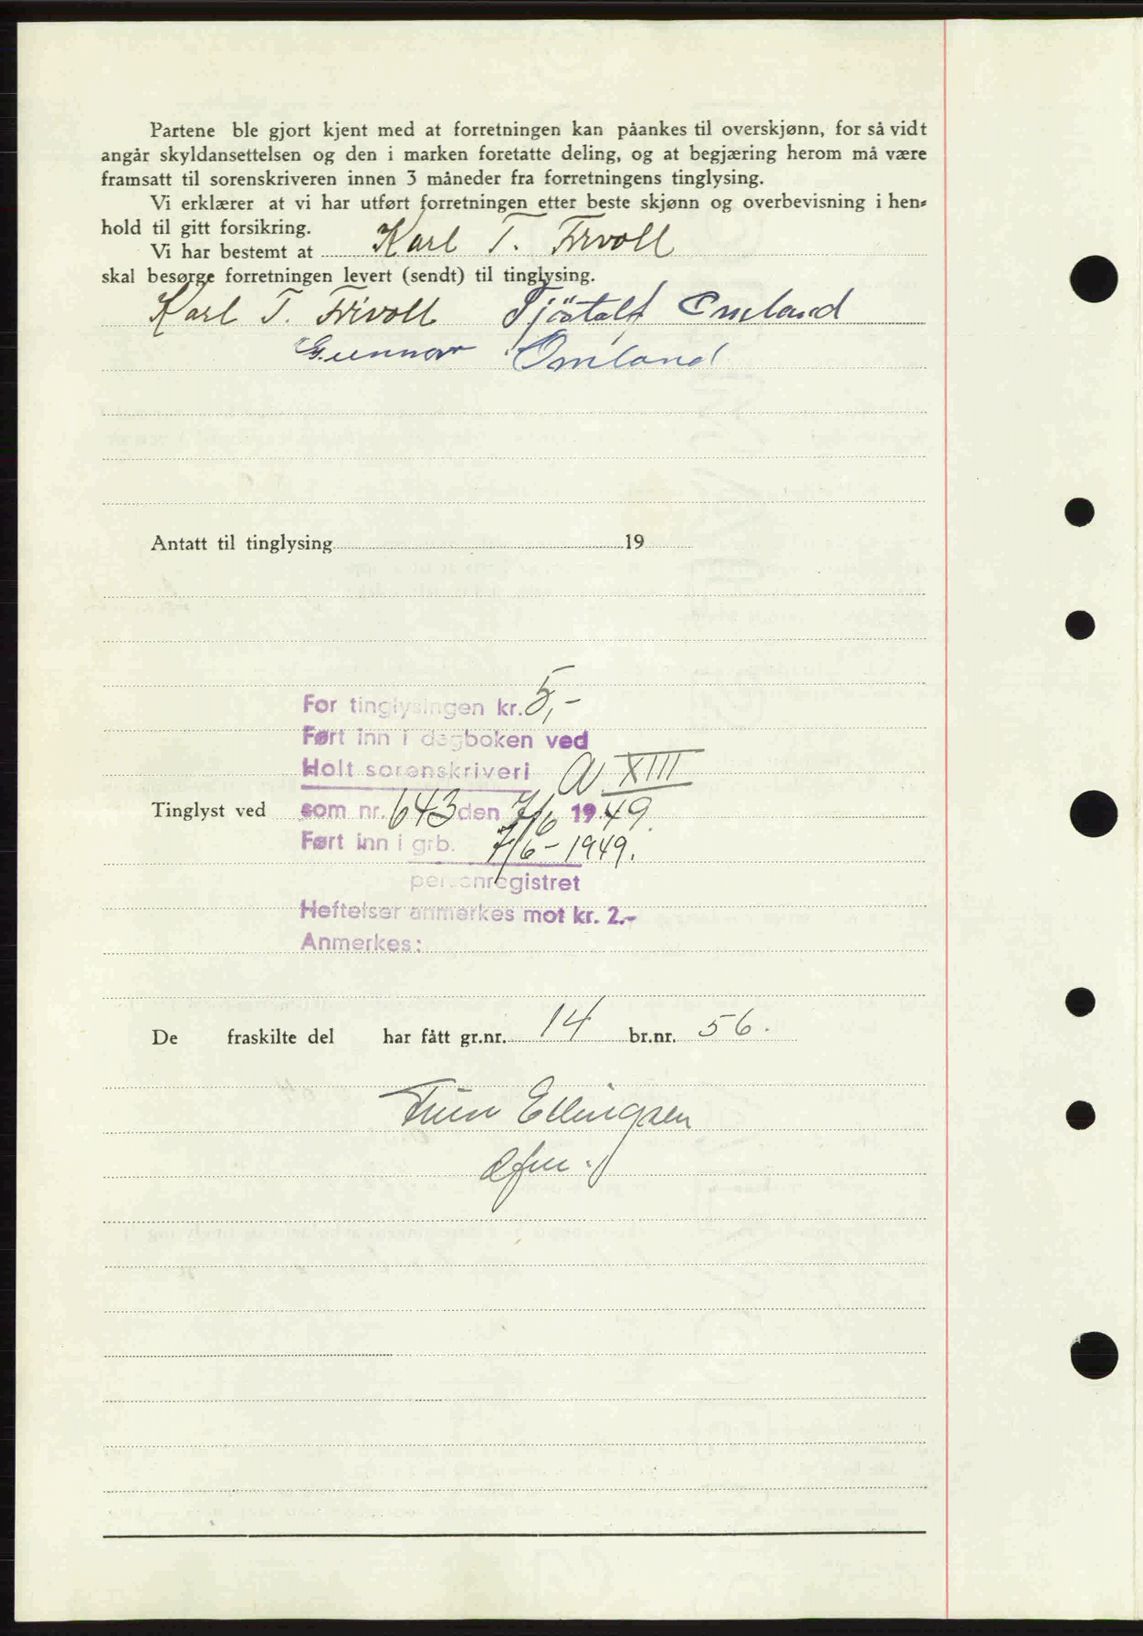 Partene ble gjort kjent med at forretningen kan påankes til overskjønn, for så vidt
angår skyldansettelsen og den i marken foretatte deling, og at begjæring herom må være
framsatt til sorenskriveren innen 3 måneder fra forretningens tinglysing.
Vi erklærer at vi har utført forretningen etter beste skjønn og overbevisning i hen-
hold til gitt forsikring.
Vi har bestemt at Karl T. Frivoll
skal besørge forretningen levert (sendt) til tinglysing.
Karl T. Frivoll Tjöstolf Omland
Gunnar Omland
Antatt til tinglysing 19
For tinglysingen kr. 5,-
Ført inn i dagboken ved
Holt sorenskriveri A XIII
Tinglyst ved som nr. 643 den 7/6 1949.
Ført inn i grb. 7/6-1949.
personregistret
Heftelser anmerkes mot kr. 2.-
Anmerkes:
De fraskilte del har fått gr.nr. 14 br.nr. 56.
Ellingsen